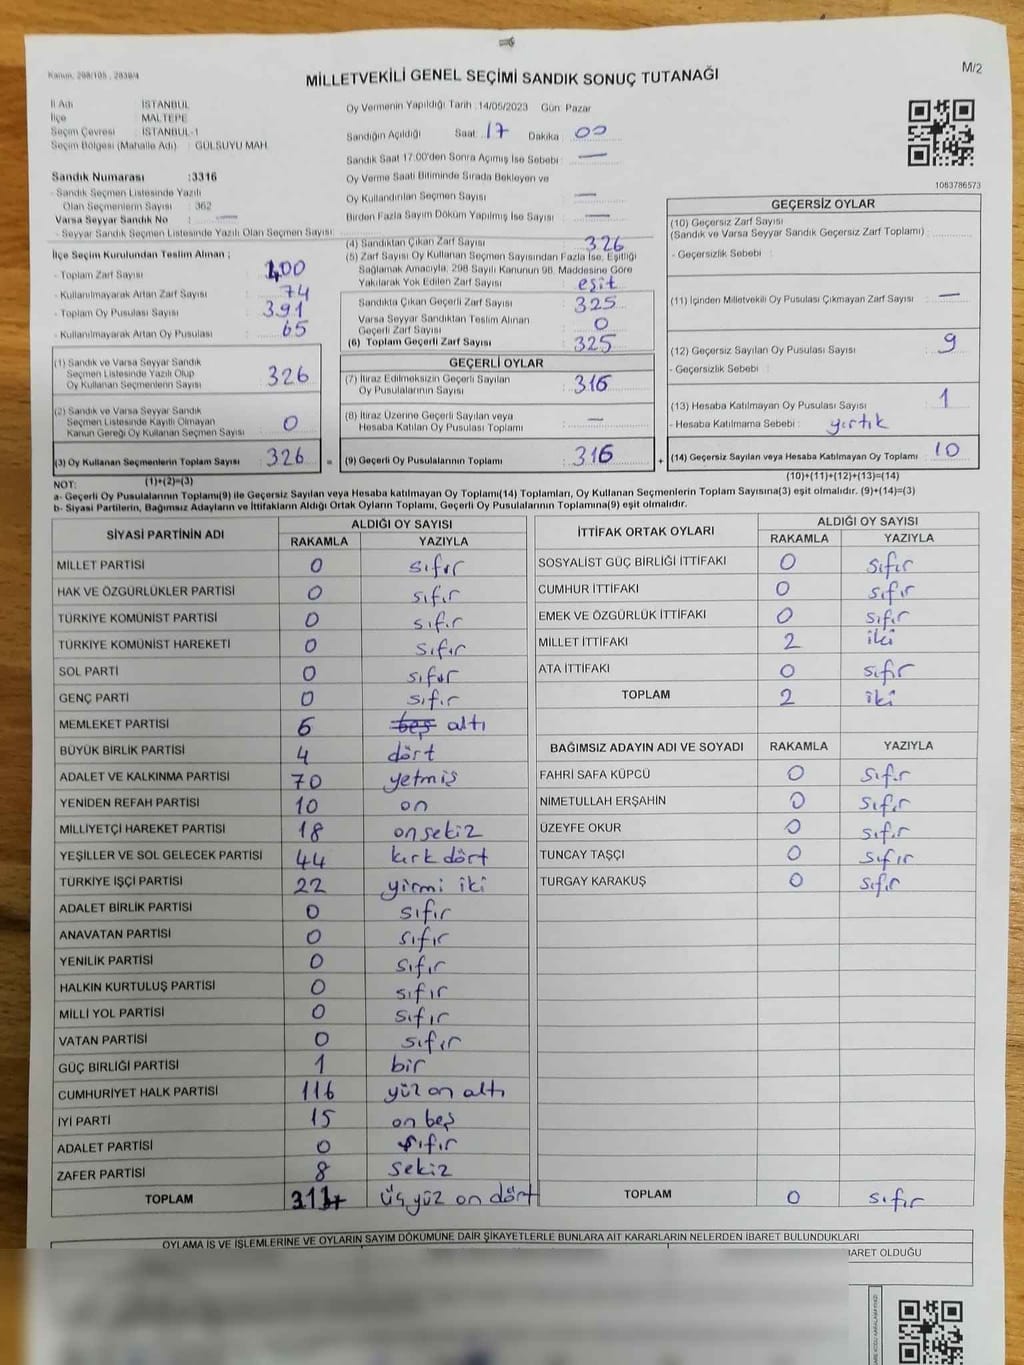 Kanun, 298/105 , 2839/4
MİLLETVEKİLİ GENEL SEÇİMİ SANDIK SONUÇ TUTANAĞI
M/2
İl Adı İSTANBUL
İlçe MALTEPE
Seçim Çevresi : İSTANBUL-1
Seçim Bölgesi (Mahalle Adı) : GÜLSUYU MAH.
Sandık Numarası :3316
- Sandık Seçmen Listesinde Yazılı
Olan Seçmenlerin Sayısı : 362
Varsa Seyyar Sandık No : —
- Seyyar Sandık Seçmen Listesinde Yazılı Olan Seçmen Sayısı :
Oy Vermenin Yapıldığı Tarih :14/05/2023 Gün: Pazar
Sandığın Açıldığı Saat: 17 Dakika : 00
Sandık Saat 17:00'den Sonra Açılmış İse Sebebi : —
Oy Verme Saati Bitiminde Sırada Bekleyen ve
Oy Kullandırılan Seçmen Sayısı : —
Birden Fazla Sayım Döküm Yapılmış İse Sayısı : —
1063786573
İlçe Seçim Kurulundan Teslim Alınan ;
- Toplam Zarf Sayısı : 400
- Kullanılmayarak Artan Zarf Sayısı : 74
- Toplam Oy Pusulası Sayısı : 391
- Kullanılmayarak Artan Oy Pusulası : 65
(1) Sandık ve Varsa Seyyar Sandık
Seçmen Listesinde Yazılı Olup
Oy Kullanan Seçmenlerin Sayısı : 326
(2) Sandık ve Varsa Seyyar Sandık
Seçmen Listesinde Kayıtlı Olmayan
Kanun Gereği Oy Kullanan Seçmen Sayısı : 0
(3) Oy Kullanan Seçmenlerin Toplam Sayısı : 326
(1)+(2)=(3)
(4) Sandıktan Çıkan Zarf Sayısı : 326
(5) Zarf Sayısı Oy Kullanan Seçmen Sayısından Fazla İse, Eşitliği
Sağlamak Amacıyla, 298 Sayılı Kanunun 98. Maddesine Göre
Yakılarak Yok Edilen Zarf Sayısı : eşit
Sandıkta Çıkan Geçerli Zarf Sayısı : 325
Varsa Seyyar Sandıktan Teslim Alınan
Geçerli Zarf Sayısı : 0
(6) Toplam Geçerli Zarf Sayısı : 325
GEÇERLİ OYLAR
(7) İtiraz Edilmeksizin Geçerli Sayılan
Oy Pusulalarının Sayısı : 316
(8) İtiraz Üzerine Geçerli Sayılan veya
Hesaba Katılan Oy Pusulası Toplamı : —
= (9) Geçerli Oy Pusulalarının Toplamı : 316
GEÇERSİZ OYLAR
(10) Geçersiz Zarf Sayısı
(Sandık ve Varsa Seyyar Sandık Geçersiz Zarf Toplamı) :
- Geçersizlik Sebebi :
(11) İçinden Milletvekili Oy Pusulası Çıkmayan Zarf Sayısı : —
(12) Geçersiz Sayılan Oy Pusulası Sayısı : 9
- Geçersizlik Sebebi :
(13) Hesaba Katılmayan Oy Pusulası Sayısı : 1
- Hesaba Katılmama Sebebi : yırtık
+ (14) Geçersiz Sayılan veya Hesaba Katılmayan Oy Toplamı : 10
(10)+(11)+(12)+(13)=(14)
NOT:
a- Geçerli Oy Pusulalarının Toplamı(9) ile Geçersiz Sayılan veya Hesaba katılmayan Oy Toplamı(14) Toplamları, Oy Kullanan Seçmenlerin Toplam Sayısına(3) eşit olmalıdır. (9)+(14)=(3)
b- Siyasi Partilerin, Bağımsız Adayların ve İttifakların Aldığı Ortak Oyların Toplamı, Geçerli Oy Pusulalarının Toplamına(9) eşit olmalıdır.
SİYASİ PARTİNİN ADI ALDIĞI OY SAYISI
RAKAMLA YAZIYLA
MİLLET PARTİSİ 0 sıfır
HAK VE ÖZGÜRLÜKLER PARTİSİ 0 sıfır
TÜRKİYE KOMÜNİST PARTİSİ 0 sıfır
TÜRKİYE KOMÜNİST HAREKETİ 0 sıfır
SOL PARTİ 0 sıfır
GENÇ PARTİ 0 sıfır
MEMLEKET PARTİSİ 6 beş altı
BÜYÜK BİRLİK PARTİSİ 4 dört
ADALET VE KALKINMA PARTİSİ 70 yetmiş
YENİDEN REFAH PARTİSİ 10 on
MİLLİYETÇİ HAREKET PARTİSİ 18 on sekiz
YEŞİLLER VE SOL GELECEK PARTİSİ 44 kırk dört
TÜRKİYE İŞÇİ PARTİSİ 22 yirmi iki
ADALET BİRLİK PARTİSİ 0 sıfır
ANAVATAN PARTİSİ 0 sıfır
YENİLİK PARTİSİ 0 sıfır
HALKIN KURTULUŞ PARTİSİ 0 sıfır
MİLLİ YOL PARTİSİ 0 sıfır
VATAN PARTİSİ 0 sıfır
GÜÇ BİRLİĞİ PARTİSİ 1 bir
CUMHURİYET HALK PARTİSİ 116 yüz on altı
İYİ PARTİ 15 on beş
ADALET PARTİSİ 0 sıfır
ZAFER PARTİSİ 8 sekiz
TOPLAM 314 üç yüz on dört
İTTİFAK ORTAK OYLARI ALDIĞI OY SAYISI
RAKAMLA YAZIYLA
SOSYALİST GÜÇ BİRLİĞİ İTTİFAKI 0 sıfır
CUMHUR İTTİFAKI 0 sıfır
EMEK VE ÖZGÜRLÜK İTTİFAKI 0 sıfır
MİLLET İTTİFAKI 2 iki
ATA İTTİFAKI 0 sıfır
TOPLAM 2 iki
BAĞIMSIZ ADAYIN ADI VE SOYADI RAKAMLA YAZIYLA
FAHRİ SAFA KÜPCÜ 0 sıfır
NİMETULLAH ERŞAHİN 0 sıfır
ÜZEYFE OKUR 0 sıfır
TUNCAY TAŞÇI 0 sıfır
TURGAY KARAKUŞ 0 sıfır
TOPLAM 0 sıfır
OYLAMA İŞ VE İŞLEMLERİNE VE OYLARIN SAYIM DÖKÜMÜNE DAİR ŞİKAYETLERLE BUNLARA AİT KARARLARIN NELERDEN İBARET BULUNDUKLARI
İBARET OLDUĞU